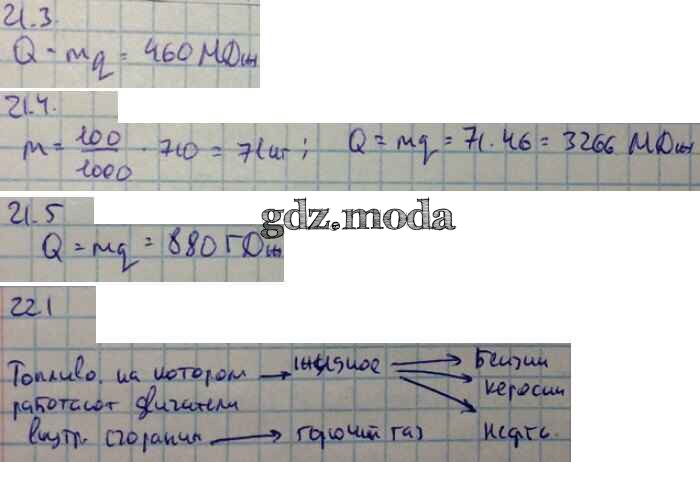 21.3.
Q = mq = 460 МДж
21.4.
m = 100/1000 · 710 = 71 кг; Q = mq = 71.46 = 3266 МДж
21.5
Q = mq = 880 ГДж
gdz.moda
22.1
Топливо, на котором → жидкое → Бензин
керосин
работают двигатели
внутр. сгорания → горючий газ нефть.